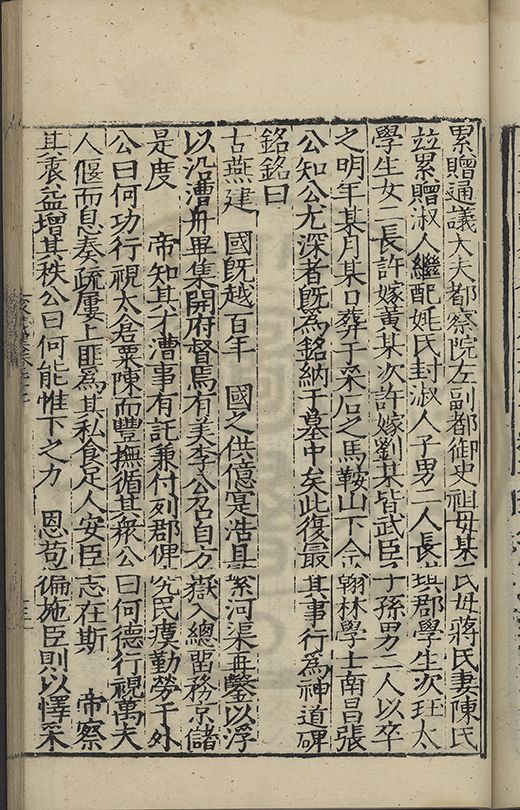 累贈通議大夫都察院左副都御史祖母某氏母蔣氏妻陳氏
竝累贈淑人繼配姚氏封淑人子男二人長 琪郡學生次玨太
學生女二長許嫁黃某次許嫁劉某皆武臣子孫男二人以卒
之明年某月某日葬于采石之馬鞍山下 翰林學士南昌張
公知公尤深者旣為銘納于墓中矣此復最其事行爲神道碑
銘銘曰
古燕建 國旣越百年 國之供億寔浩且繁河渠再鑿以浮
以沿漕舟畢集開府督焉有美李公名自方嶽入總留務京儲
是度 帝知其才漕事有託兼付列郡俾究民瘼勤勞于外
公曰何功行視太倉粟陳而豐撫循其衆公曰何德行視萬夫
人偃而息奏疏屢上匪爲其私食足人安臣志在斯 帝察
其衷益增其秩公曰何能惟下之力 恩苟徧施臣則以懌采